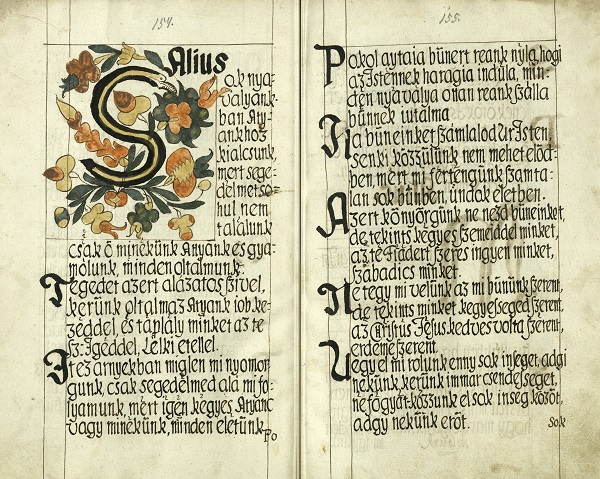 154.
SAlius
ok nya-
valyank-
ban Aty-
ank hoz
kialcsunk,
mert sege-
delmet so-
hul nem
talalunk
csak ő minékünk Atyank és gya-
molunk, minden oltalmunk.
Tegedet azert alazatos szivel,
kerünk oltalmaz Atyank iob ke-
zéddel, és taplaly minket az te
sz: Igéddel, Lelki etellel.
Itez arnyekban miglen mi nyomor-
gunk, csak segedelmed ala mi fo-
lyamunk, mert igén kegyes Atyanc
vagy minékünk, minden eletünk.
Po
155.
Pokol aytaia bünert reank nyla, hogi
az Istennek haragia indula, min-
den nyavalya onan reank szalla
bünnek iutalma
Ha büneinket szamlalod Ur Isten,
senki közzülünk nem mehet elöd-
ben, mert mi fertengünk szamta-
lan sok bünben, undok eletben.
Azert könyörgünk ne nezd büneinket,
de tekints kegyes szemeiddel minket,
az te Fiadert szeres ingyen minket,
szabadics minket.
Ne tegy mi velünk az mi bününk szerent,
de tekints minket kegyelseged szerent,
az Christus Jesus kedves volta szerent,
erdeme szerent.
Vegyel mi rolunk enny sok inseget, adgi
nekünk, kerünk immar csendesseget,
ne fogyát-kozzunk el sok inseg közöt,
adgy nekünk eröt.
Sok